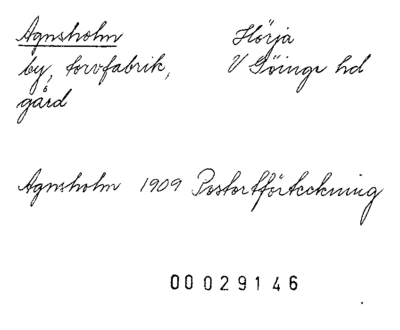 Agnsholm Hörja
by, torvfabrik, V Göinge hd
gård
Agnsholm 1909 Postortförteckning
00029146